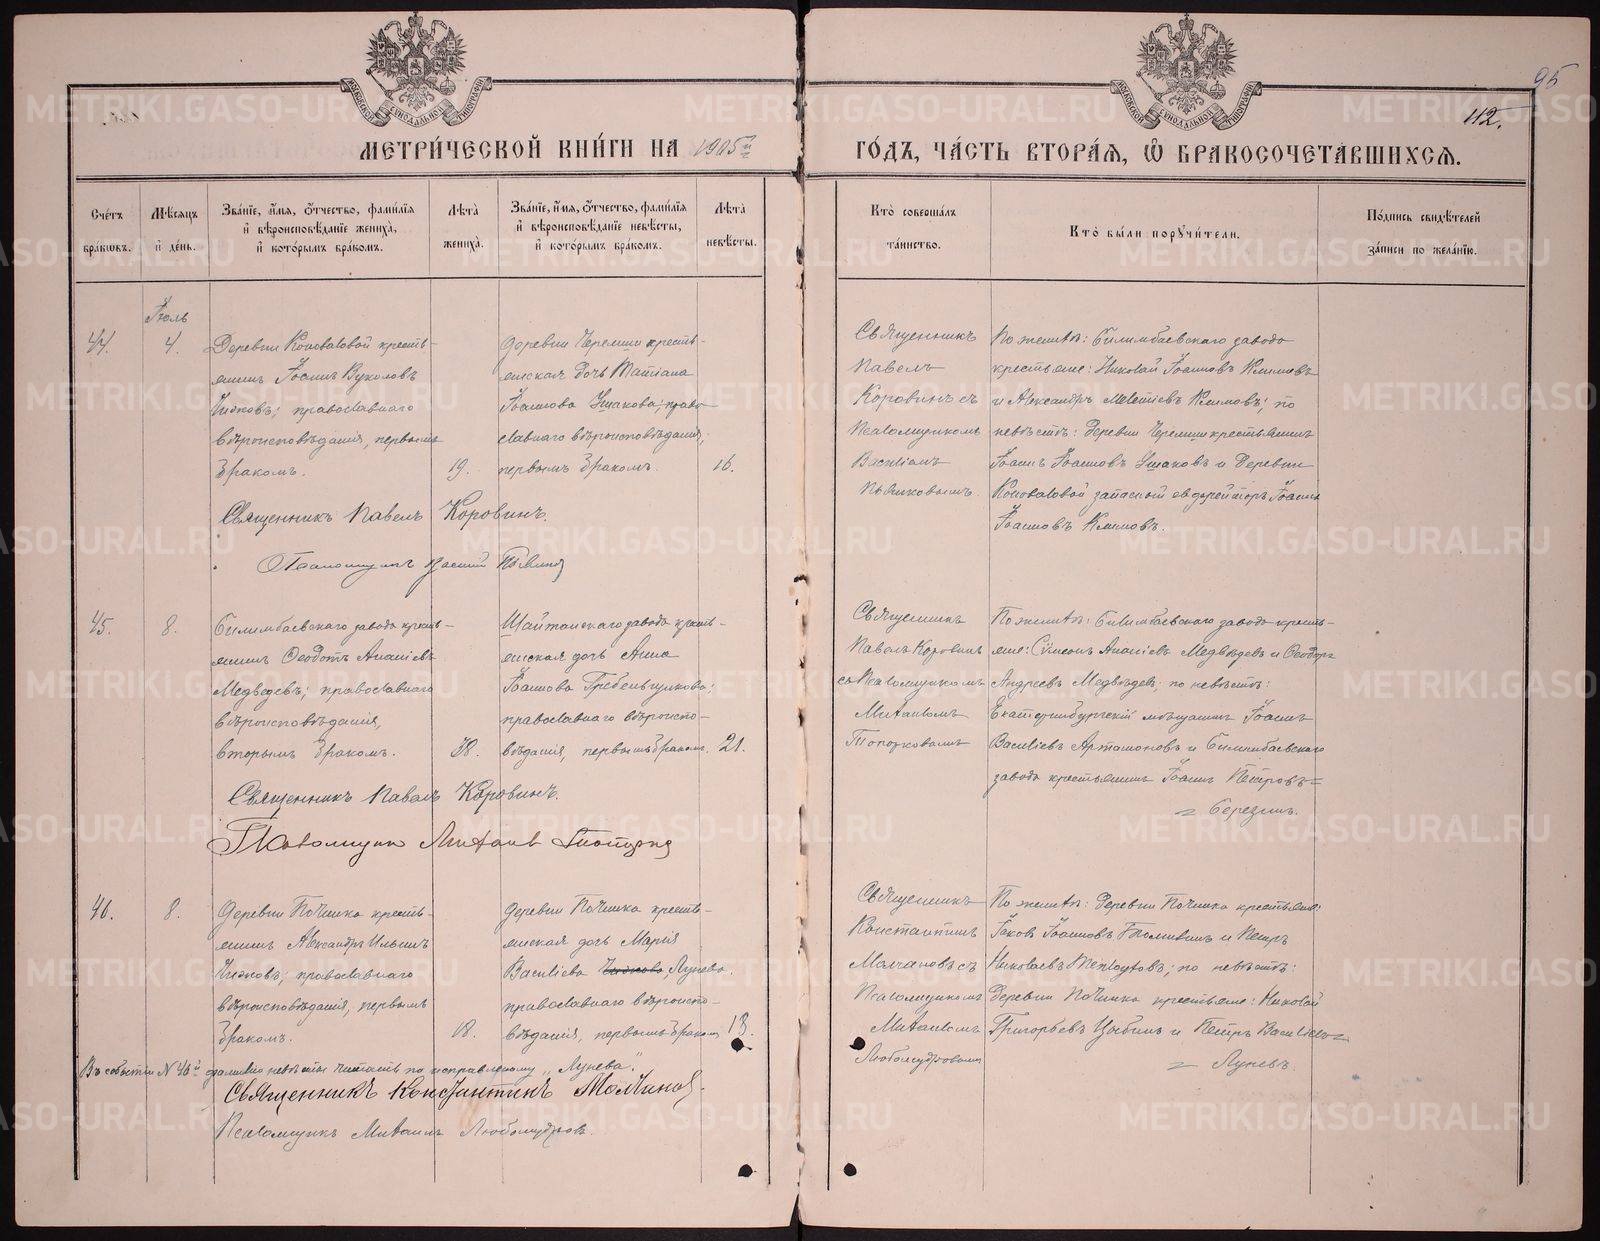 95
112.
МЕТРИЧЕСКОЙ КНИГИ НА 1905й
ГОДЪ, ЧАСТЬ ВТОРАЯ, Ѡ БРАКОСОЧЕТАВШИХСЯ.
Счетъ браковъ.
Мѣсяцъ и день.
Званіе, имя, отчество, фамилія и вѣроисповѣданіе жениха, и которымъ бракомъ.
Лѣта жениха.
Званіе, имя, отчество, фамилія и вѣроисповѣданіе невѣсты, и которымъ бракомъ.
Лѣта невѣсты.
Кто совершалъ таинство.
Кто были поручители.
Подпись свидѣтелей записи по желанію.
Іюль
44.
4.
Деревни Коноваловой кресть-
янинъ Іоаннъ Вуколовъ
Чижовъ; православнаго
вѣроисповѣданія, первымъ
бракомъ.
19.
деревни Черемши кресть-
янская дочь Татіана
Іоаннова Ушакова; право-
славнаго вѣроисповѣданія,
первымъ бракомъ.
16.
Священникъ
Павелъ
Коровинъ съ
Псаломщикомъ
Василіемъ
По женихѣ: Билимбаевскаго завода
крестьяне: Николай Іоанновъ Климовъ
и Александръ Мелетіевъ Климовъ; по
невѣстѣ: деревни Черемши крестьянинъ
Іоаннъ Іоанновъ Ушаковъ и деревни
Коноваловой запасной ефрейторъ Іоаннъ
Іоанновъ Климовъ.
Священникъ Павелъ Коровинъ.
Псаломщикъ Василій
45.
8.
Билимбаевскаго завода кресть-
янинъ Ѳеодотъ Ананіевъ
Медведевъ; православнаго
вѣроисповѣданія,
вторымъ бракомъ.
38.
Шайтанскаго завода кресть-
янская дочь Анна
Іоаннова Гребенщикова;
православнаго вѣроиспо-
вѣданія, первымъ бракомъ.
21.
Священникъ
Павелъ Коровинъ
съ Псаломщикомъ
Михаиломъ
Топорковымъ
По женихѣ: Билимбаевскаго завода кресть-
яне: Сѵмеонъ Ананіевъ Медвѣдевъ и Ѳеодоръ
Андреевъ Медвѣдевъ; по невѣстѣ:
Екатеринбургскій мѣщанинъ Іоаннъ
Василіевъ Артамоновъ и Билимбаевскаго
завода крестьянинъ Іоаннъ Петровъ=
= Березинъ.
Священникъ Павелъ Коровинъ.
Псаломщикъ Михаилъ
46.
8.
Деревни Починка кресть-
янинъ Александръ Ильинъ
Чижовъ; православнаго
вѣроисповѣданія, первымъ
бракомъ.
18.
деревни Починка кресть-
янская дочь Марія
Василіева Чижова, Лунева.
православнаго вѣроиспо-
вѣданія, первымъ бракомъ
Священникъ
Константинъ
Молчановъ съ
Псаломщикомъ
Михаиломъ
Любомудровымъ
По женихѣ: деревни Починка крестьяне:
Іаковъ Іоанновъ и Петръ
Николаевъ Теплоуховъ; по невѣстѣ:
деревни Починка крестьяне: Николай
Григорьевъ Цыбинъ и Петръ Василіевъ=
= Луневъ.
Въ событіи № 46й фамилію невѣсты читать по исправленному „Лунева".
Священникъ Константинъ Молчановъ.
Псаломщикъ Михаилъ Любомудровъ.
METRIKI.GASO-URAL.RU